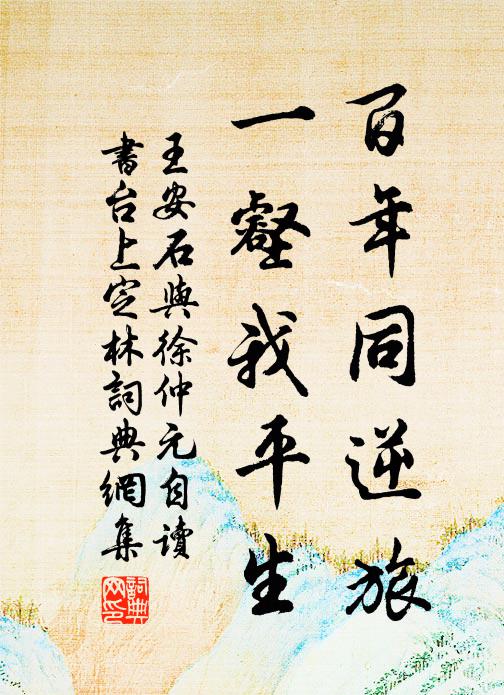 百年同逆旅
一壑我平生
王安石與徐仲元自讀
書台上定林詞典網集
詞典網印